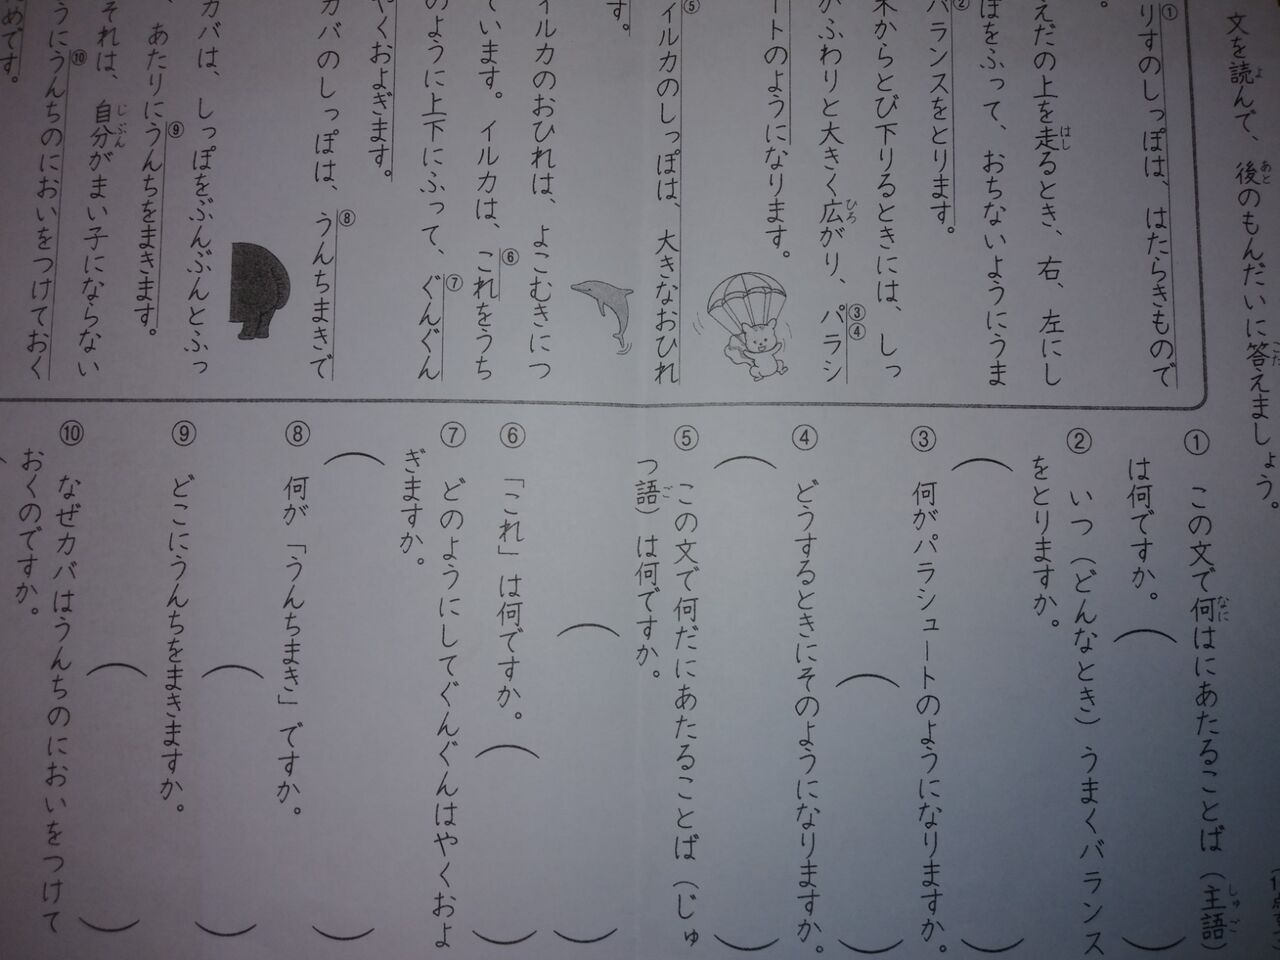 文を読んで、後のもんだいに答えましょう。
①りすのしっぽは、はたらきもので
す。
えだの上を走るとき、右、左にし
ぽをふって、おちないようにうま
②バランスをとります。
木からとび下りるときには、しっ
がふわりと大きく広がり、③④パラシ
ートのようになります。
⑤イルカのしっぽは、大きなおひれ
す。
イルカのおひれは、よこむきにつ
ています。イルカは、⑥これをうち
のように上下にふって、⑦ぐんぐん
やくおよぎます。
カバのしっぽは、⑧うんちまきで
カバは、しっぽをぶんぶんとふっ
、あたりに⑨うんちをまきます。
それは、自分がまい子にならない
うに⑩うんちのにおいをつけておく
めです。
① この文で何はにあたることば(主語)
は何ですか。
② いつ(どんなとき)うまくバランス
をとりますか。
③ 何がパラシュートのようになりますか。
④ どうするときにそのようになりますか。
⑤ この文で何だにあたることば(じゅ
つ語)は何ですか。
⑥ 「これ」は何ですか。
⑦ どのようにしてぐんぐんはやくおよ
ぎますか。
⑧ 何が「うんちまき」ですか。
⑨ どこにうんちをまきますか。
⑩ なぜカバはうんちのにおいをつけて
おくのですか。